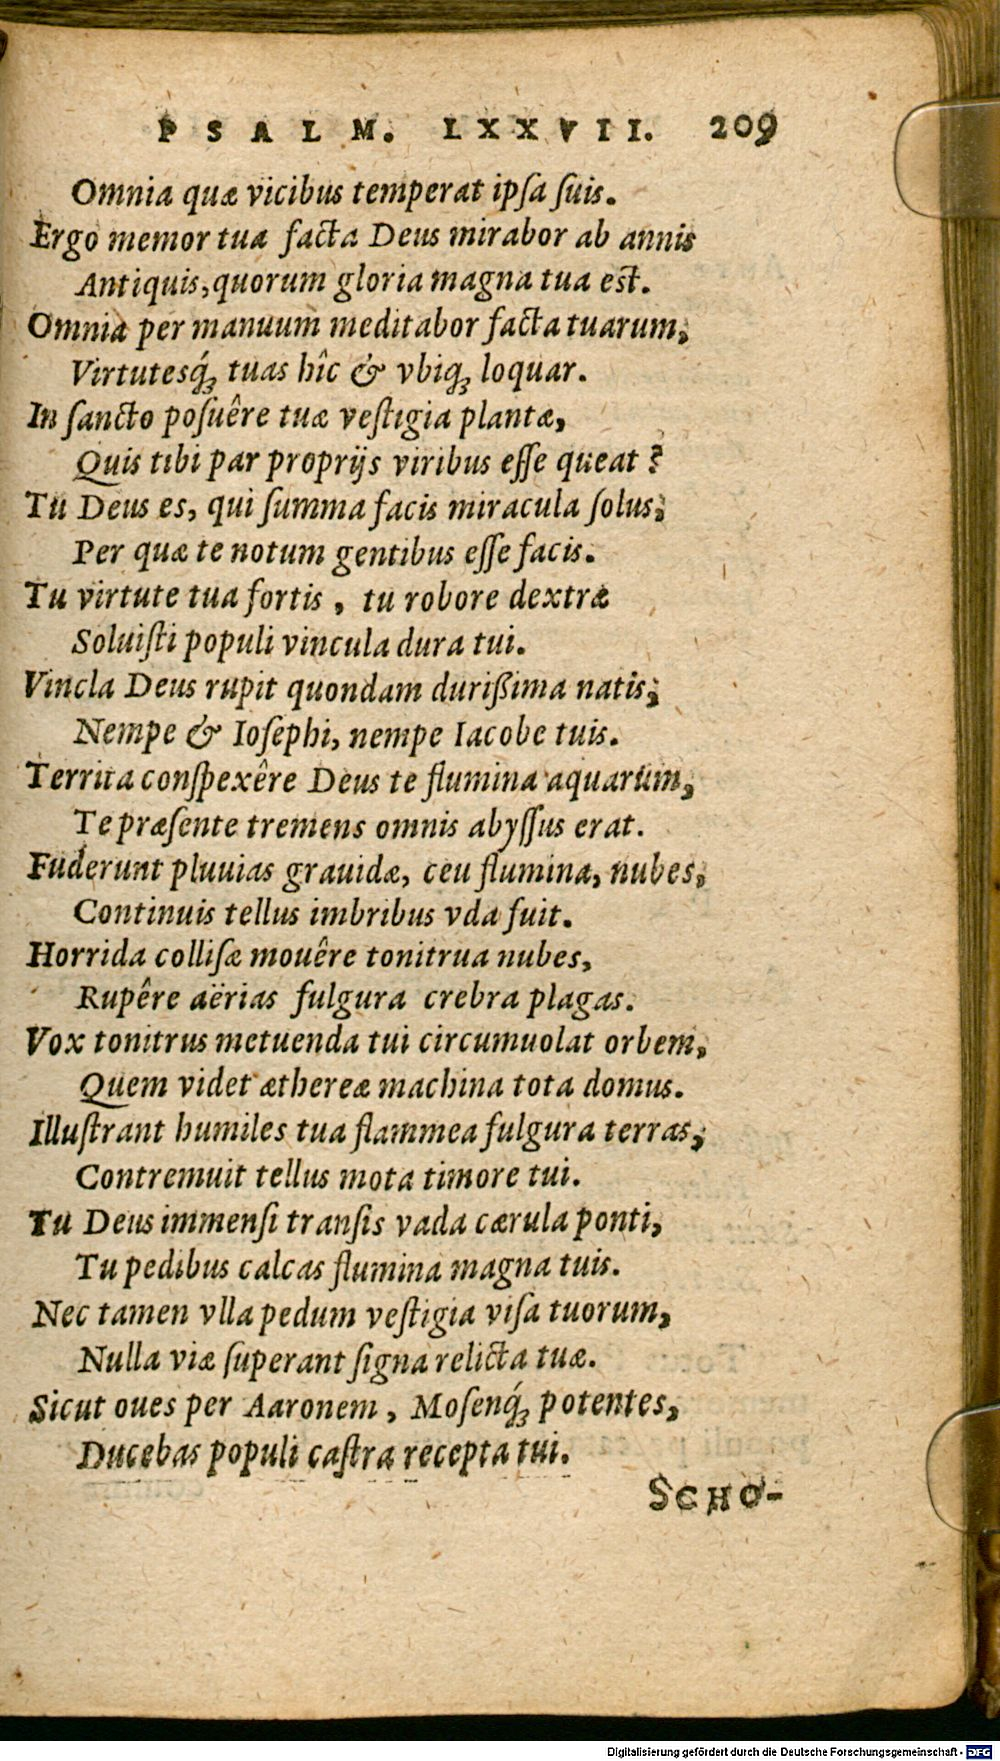 PSALM. LXXVII. 209
Omnia quæ vicibus temperat ipſa ſuis.
Ergo memor tua facta Deus mirabor ab annis
Antiquis, quorum gloria magna tua eſt.
Omnia per manuum meditabor facta tuarum,
Virtutesq́; tuas hîc & vbiq; loquar.
In ſancto poſuêre tuæ veſtigia plantæ,
Quis tibi par proprijs viribus eſſe queat?
Tu Deus es, qui ſumma facis miracula ſolus;
Per quæ te notum gentibus eſſe facis.
Tu virtute tua fortis, tu robore dextræ
Soluiſti populi vincula dura tui.
Vincla Deus rupit quondam durißima natis;
Nempe & Ioſephi, nempe Iacobe tuis.
Territa conſpexêre Deus te flumina aquarum,
Te præſente tremens omnis abyſſus erat.
Fuderunt pluuias grauidæ, ceu flumina, nubes,
Continuis tellus imbribus vda fuit.
Horrida colliſæ mouêre tonitrua nubes,
Rupêre aërias fulgura crebra plagas.
Vox tonitrus metuenda tui circumuolat orbem,
Quem videt æthereæ machina tota domus.
Illuſtrant humiles tua flammea fulgura terras;
Contremuit tellus mota timore tui.
Tu Deus immenſi tranſis vada cærula ponti,
Tu pedibus calcas flumina magna tuis.
Nec tamen vlla pedum veſtigia viſa tuorum,
Nulla viæ ſuperant ſigna relicta tuæ.
Sicut oues per Aaronem, Moſenq́; potentes,
Ducebas populi caſtra recepta tui.
SCHO-
Digitalisierung gefördert durch die Deutsche Forschungsgemeinschaft - DFG